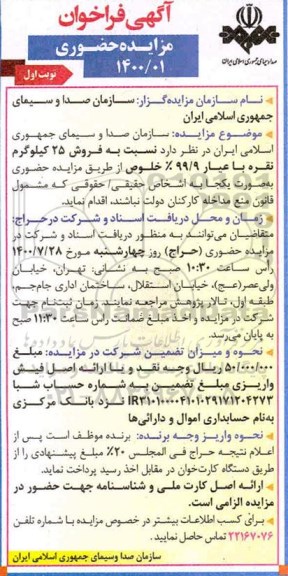 آگهی فراخوان
مزایده حضوری
۱۴۰۰/۰۱
صدا و سیمای جمهوری اسلامی ایران
نوبت اول
نام سازمان مزایده‌گزار: سازمان صدا و سیمای
جمهوری اسلامی ایران
موضوع مزایده: سازمان صدا و سیمای جمهوری
اسلامی ایران در نظر دارد نسبت به فروش ۲۵ کیلوگرم
نقره با عیار ۹۹/۹ ٪ خلوص از طریق مزایده حضوری
به‌صورت یکجا به اشخاص حقیقی/حقوقی که مشمول
قانون منع مداخله کارکنان دولت نباشند، اقدام نماید.
زمان و محل دریافت اسناد و شرکت در حراج:
متقاضیان می‌توانند به منظور دریافت اسناد و شرکت در
مزایده حضوری (حراج) روز چهارشنبه مورخ ۱۴۰۰/۷/۲۸
رأس ساعت ۱۰:۳۰ صبح به نشانی: تهران، خیابان
ولی‌عصر(عج)، خیابان استقلال، ساختمان اداری جام‌جم،
طبقه اول، تالار پژوهش مراجعه نمایند. زمان ثبت‌نام جهت
شرکت در مزایده و اخذ مبلغ ضمانت راس ساعت ۱۱:۳۰ صبح
به پایان می‌رسد.
نحوه و میزان تضمین شرکت در مزایده: مبلغ
۵۰۰/۰۰۰/۰۰۰ ریال وجه نقد و یا ارائه اصل فیش
واریزی مبلغ تضمین به شماره حساب شبا
نزد بانک مرکزی
به‌نام حسابداری اموال و دارائی‌ها
نحوه واریز وجه برنده: برنده موظف است پس از
اعلام نتیجه حراج فی المجلس ۲۰٪ مبلغ پیشنهادی را از
طریق دستگاه کارت‌خوان در مقابل اخذ رسید پرداخت نماید.
ارائه اصل کارت ملی و شناسنامه جهت حضور در
مزایده الزامی است.
برای کسب اطلاعات بیشتر در خصوص مزایده با شماره تلفن
۲۲۱۶۷۰۷۶ تماس حاصل نمایید.
سازمان صدا وسیمای جمهوری اسلامی ایران